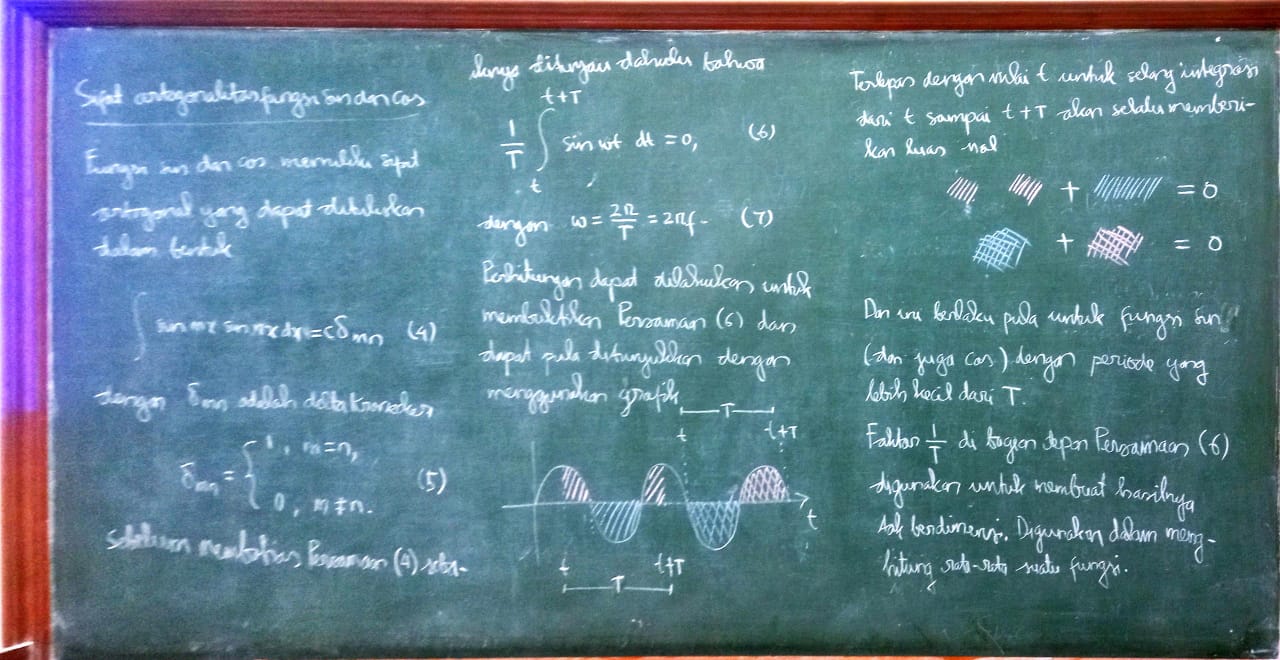 Sifat ortogonalitas fungsi sin dan cos
Fungsi sin dan cos memiliki sifat
ortogonal yang dapat dituliskan
dalam bentuk
∫ sin mx sin nx dx = cδmn (4)
dengan δmn adalah delta Kronecker,
δmn = { 1, m=n,
0, m≠n. (5)
Sebelum membahas Persamaan (4) seba-
iknya ditinjau dahulu bahwa
t+T
1/T ∫ sin ωt dt = 0, (6)
t
dengan ω = 2π/T = 2πf. (7)
Perhitungan dapat dilakukan untuk
membuktikan Persamaan (6) dan
dapat pula ditunjukkan dengan
menggunakan grafik
T
t t+T
t
t t+T
T
Terlepas dengan nilai t untuk selang integrasi
dari t sampai t+T akan selalu memberi-
kan luas nol
+ = 0
+ = 0
Dan ini berlaku pula untuk fungsi sin
(dan juga cos) dengan periode yang
lebih kecil dari T.
Faktor 1/T di bagian depan Persamaan (6)
digunakan untuk membuat hasilnya
tak berdimensi. Digunakan dalam meng-
hitung rata-rata suatu fungsi.